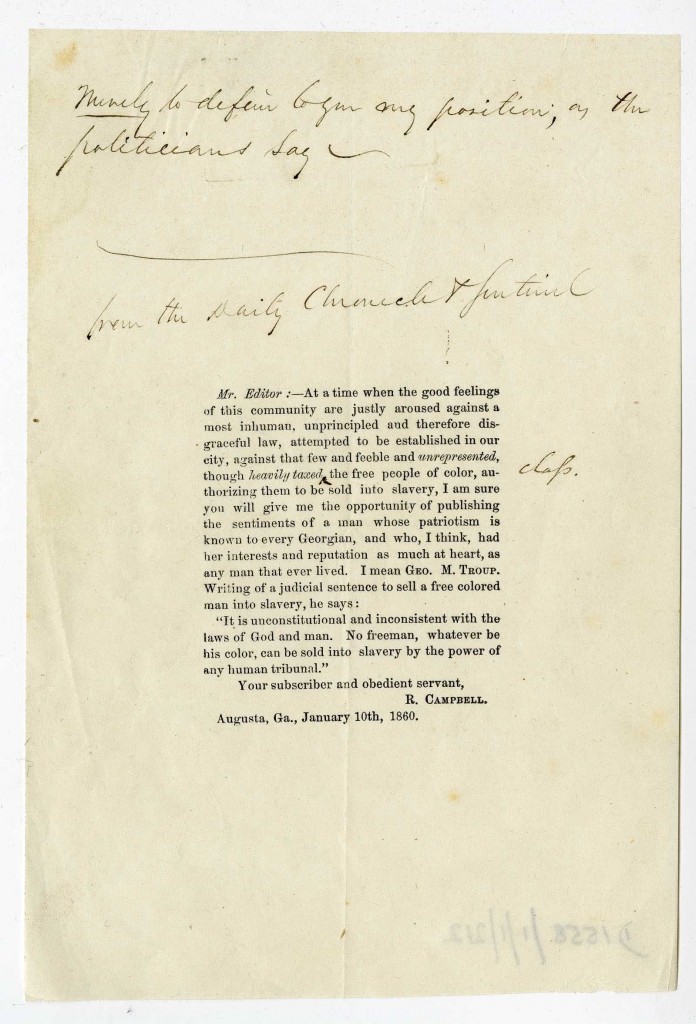 Merely to define to you my position, as the
politicians say
from the Daily Chronicle & Sentinel
Mr. Editor :—At a time when the good feelings
of this community are justly aroused against a
most inhuman, unprincipled and therefore dis-
graceful law, attempted to be established in our
city, against that few and feeble and unrepresented,
though heavily taxed, the free people of color, au-
class.
thorizing them to be sold into slavery, I am sure
you will give me the opportunity of publishing
the sentiments of a man whose patriotism is
known to every Georgian, and who, I think, had
her interests and reputation as much at heart, as
any man that ever lived. I mean GEO. M. TROUP.
Writing of a judicial sentence to sell a free colored
man into slavery, he says :
"It is unconstitutional and inconsistent with the
laws of God and man. No freeman, whatever be
his color, can be sold into slavery by the power of
any human tribunal."
Your subscriber and obedient servant,
R. CAMPBELL.
Augusta, Ga., January 10th, 1860.